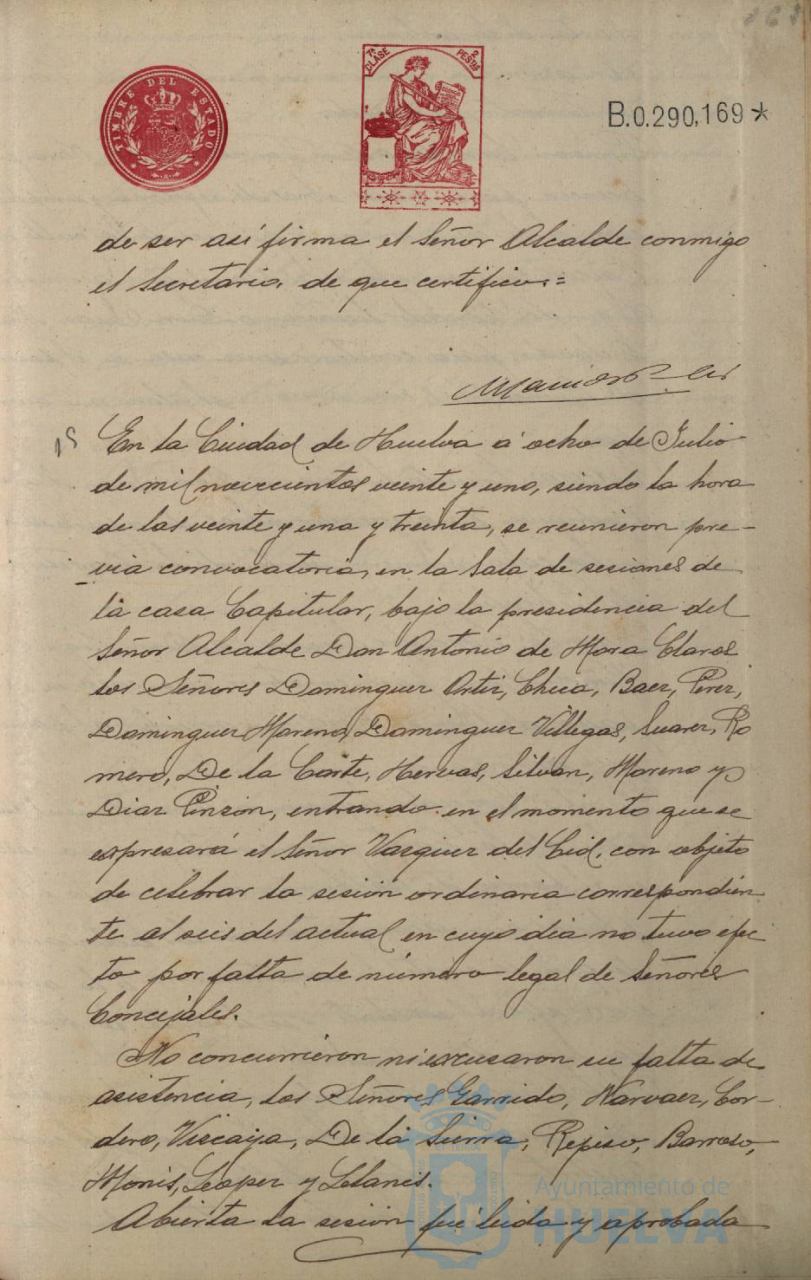 TIMBRE DEL ESTADO
7ª CLASE 2 PESTAS
B.0.290,169*
de ser así firma el Señor Alcalde conmigo
el Secretario, de que certifico.=
En la Ciudad de Huelva a ocho de Julio
de mil novecientos veinte y uno, siendo la hora
de las veinte y una y treinta, se reunieron pre-
via convocatoria, en la Sala de sesiones de
la casa Capitular, bajo la presidencia del
Señor Alcalde Don Antonio de Mora Claros
los Señores Dominguez Ortiz, Checa, Baez, Perez,
Dominguez Moreno, Dominguez Villegas, Suarez, Ro
mero, De la Corte, Hervas, Silvan, Moreno y
Diaz Pinzón, entrando en el momento que se
expresará el Señor Vazquez del Cid, con objeto
de celebrar la sesión ordinaria correspondien
te al seis del actual en cuyo dia no tuvo efec
to por falta de número legal de Señores
Concejales.
No concurrieron ni excusaron su falta de
asistencia, los Señores Garrido, Narvaez, Cor-
dero, Vizcaya, De la Sierra, Repiso, Barroso,
Monis, Lopez y Llanes.
Abierta la sesión fué leida y aprobada
Ayuntamiento de
HUELVA